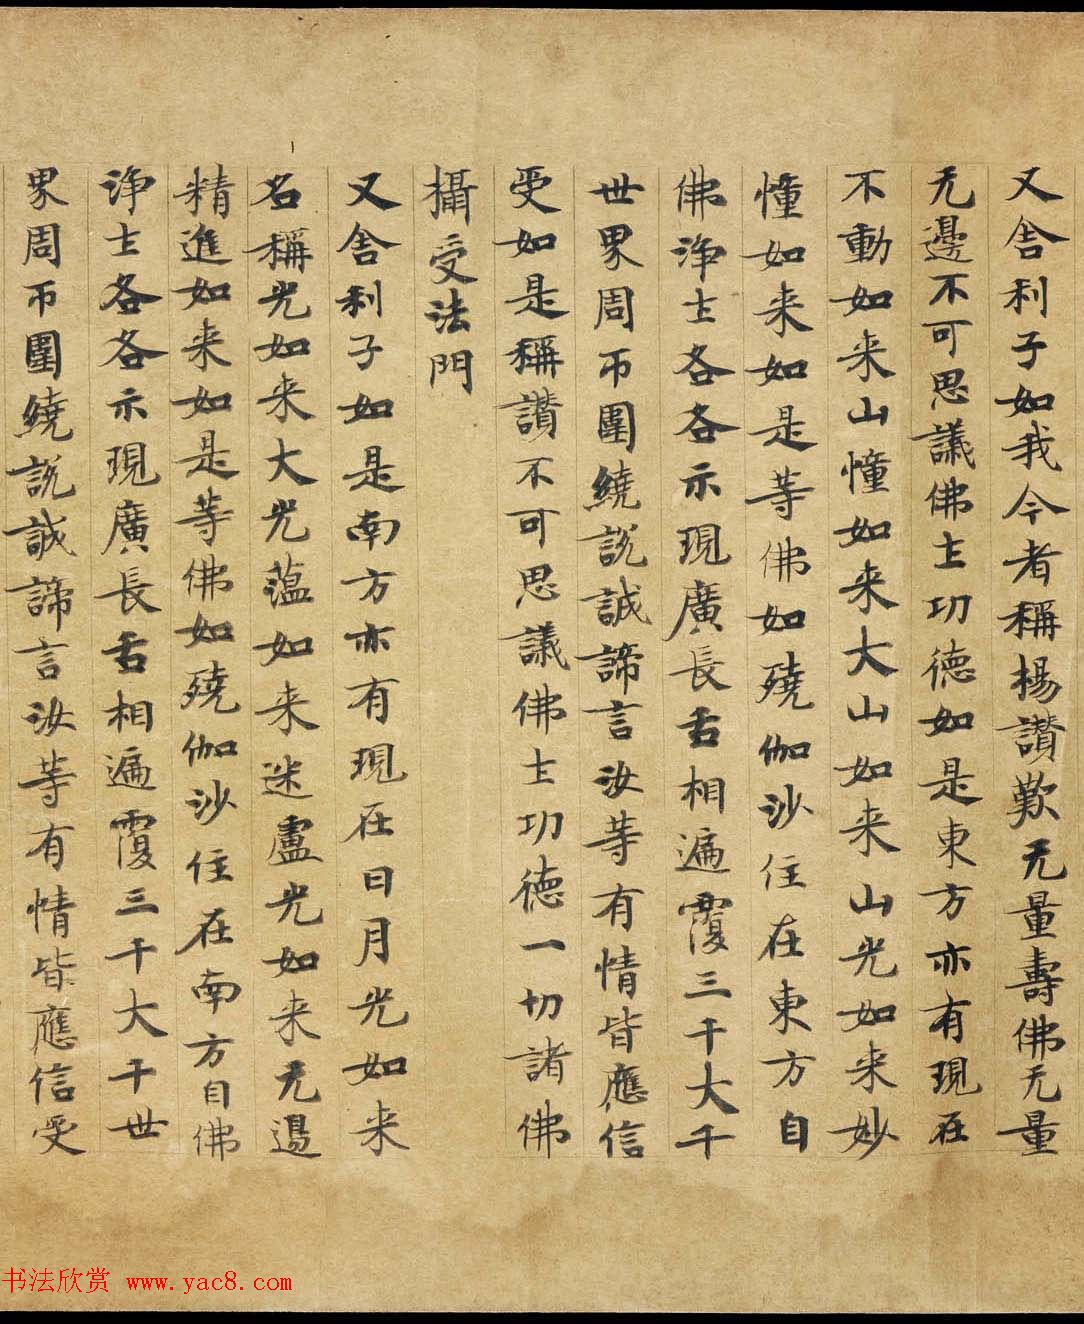 又舍利子如我今者稱楊讚歎无量壽佛无量
无邊不可思議佛土功德如是東方亦有現在
不動如来山憧如来大山如来山光如来妙
憧如来如是等佛如殑伽沙住在東方自
佛浄土各各示現廣長舌相遍覆三千大千
世界周帀圍繞説誠諦言汝等有情皆應信
受如是稱讚不可思議佛土功德一切諸佛
攝受法門
又舍利子如是南方亦有現在日月光如来
名稱光如来大光蕰如来迷盧光如来无邉
精進如来如是等佛如殑伽沙住在南方自佛
浄土各各示現廣長舌相遍覆三千大千世
界周帀圍繞説誠諦言汝等有情皆應信受
书法欣赏 www.yac8.com